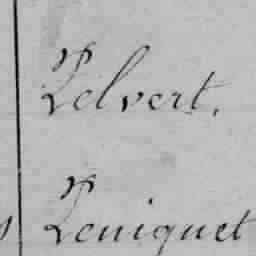 Pelvert.
Peniquet